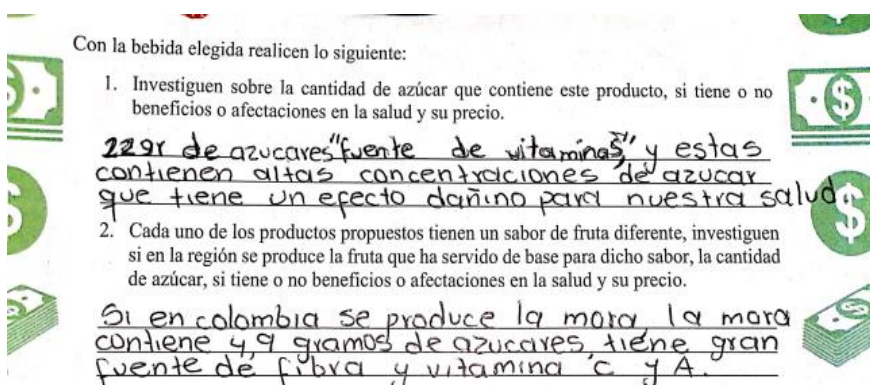 Con la bebida elegida realicen lo siguiente:
1. Investiguen sobre la cantidad de azúcar que contiene este producto, si tiene o no
beneficios o afectaciones en la salud y su precio.
22gr de azucares "fuente de vitaminas", y estas
contienen altas concentraciones de azucar
que tiene un efecto dañino para nuestra salud.
2. Cada uno de los productos propuestos tienen un sabor de fruta diferente, investiguen
si en la región se produce la fruta que ha servido de base para dicho sabor, la cantidad
de azúcar, si tiene o no beneficios o afectaciones en la salud y su precio.
Si en colombia se produce la mora la mora
contiene 4,9 gramos de azucares, tiene gran
fuente de fibra y vitamina c y A.